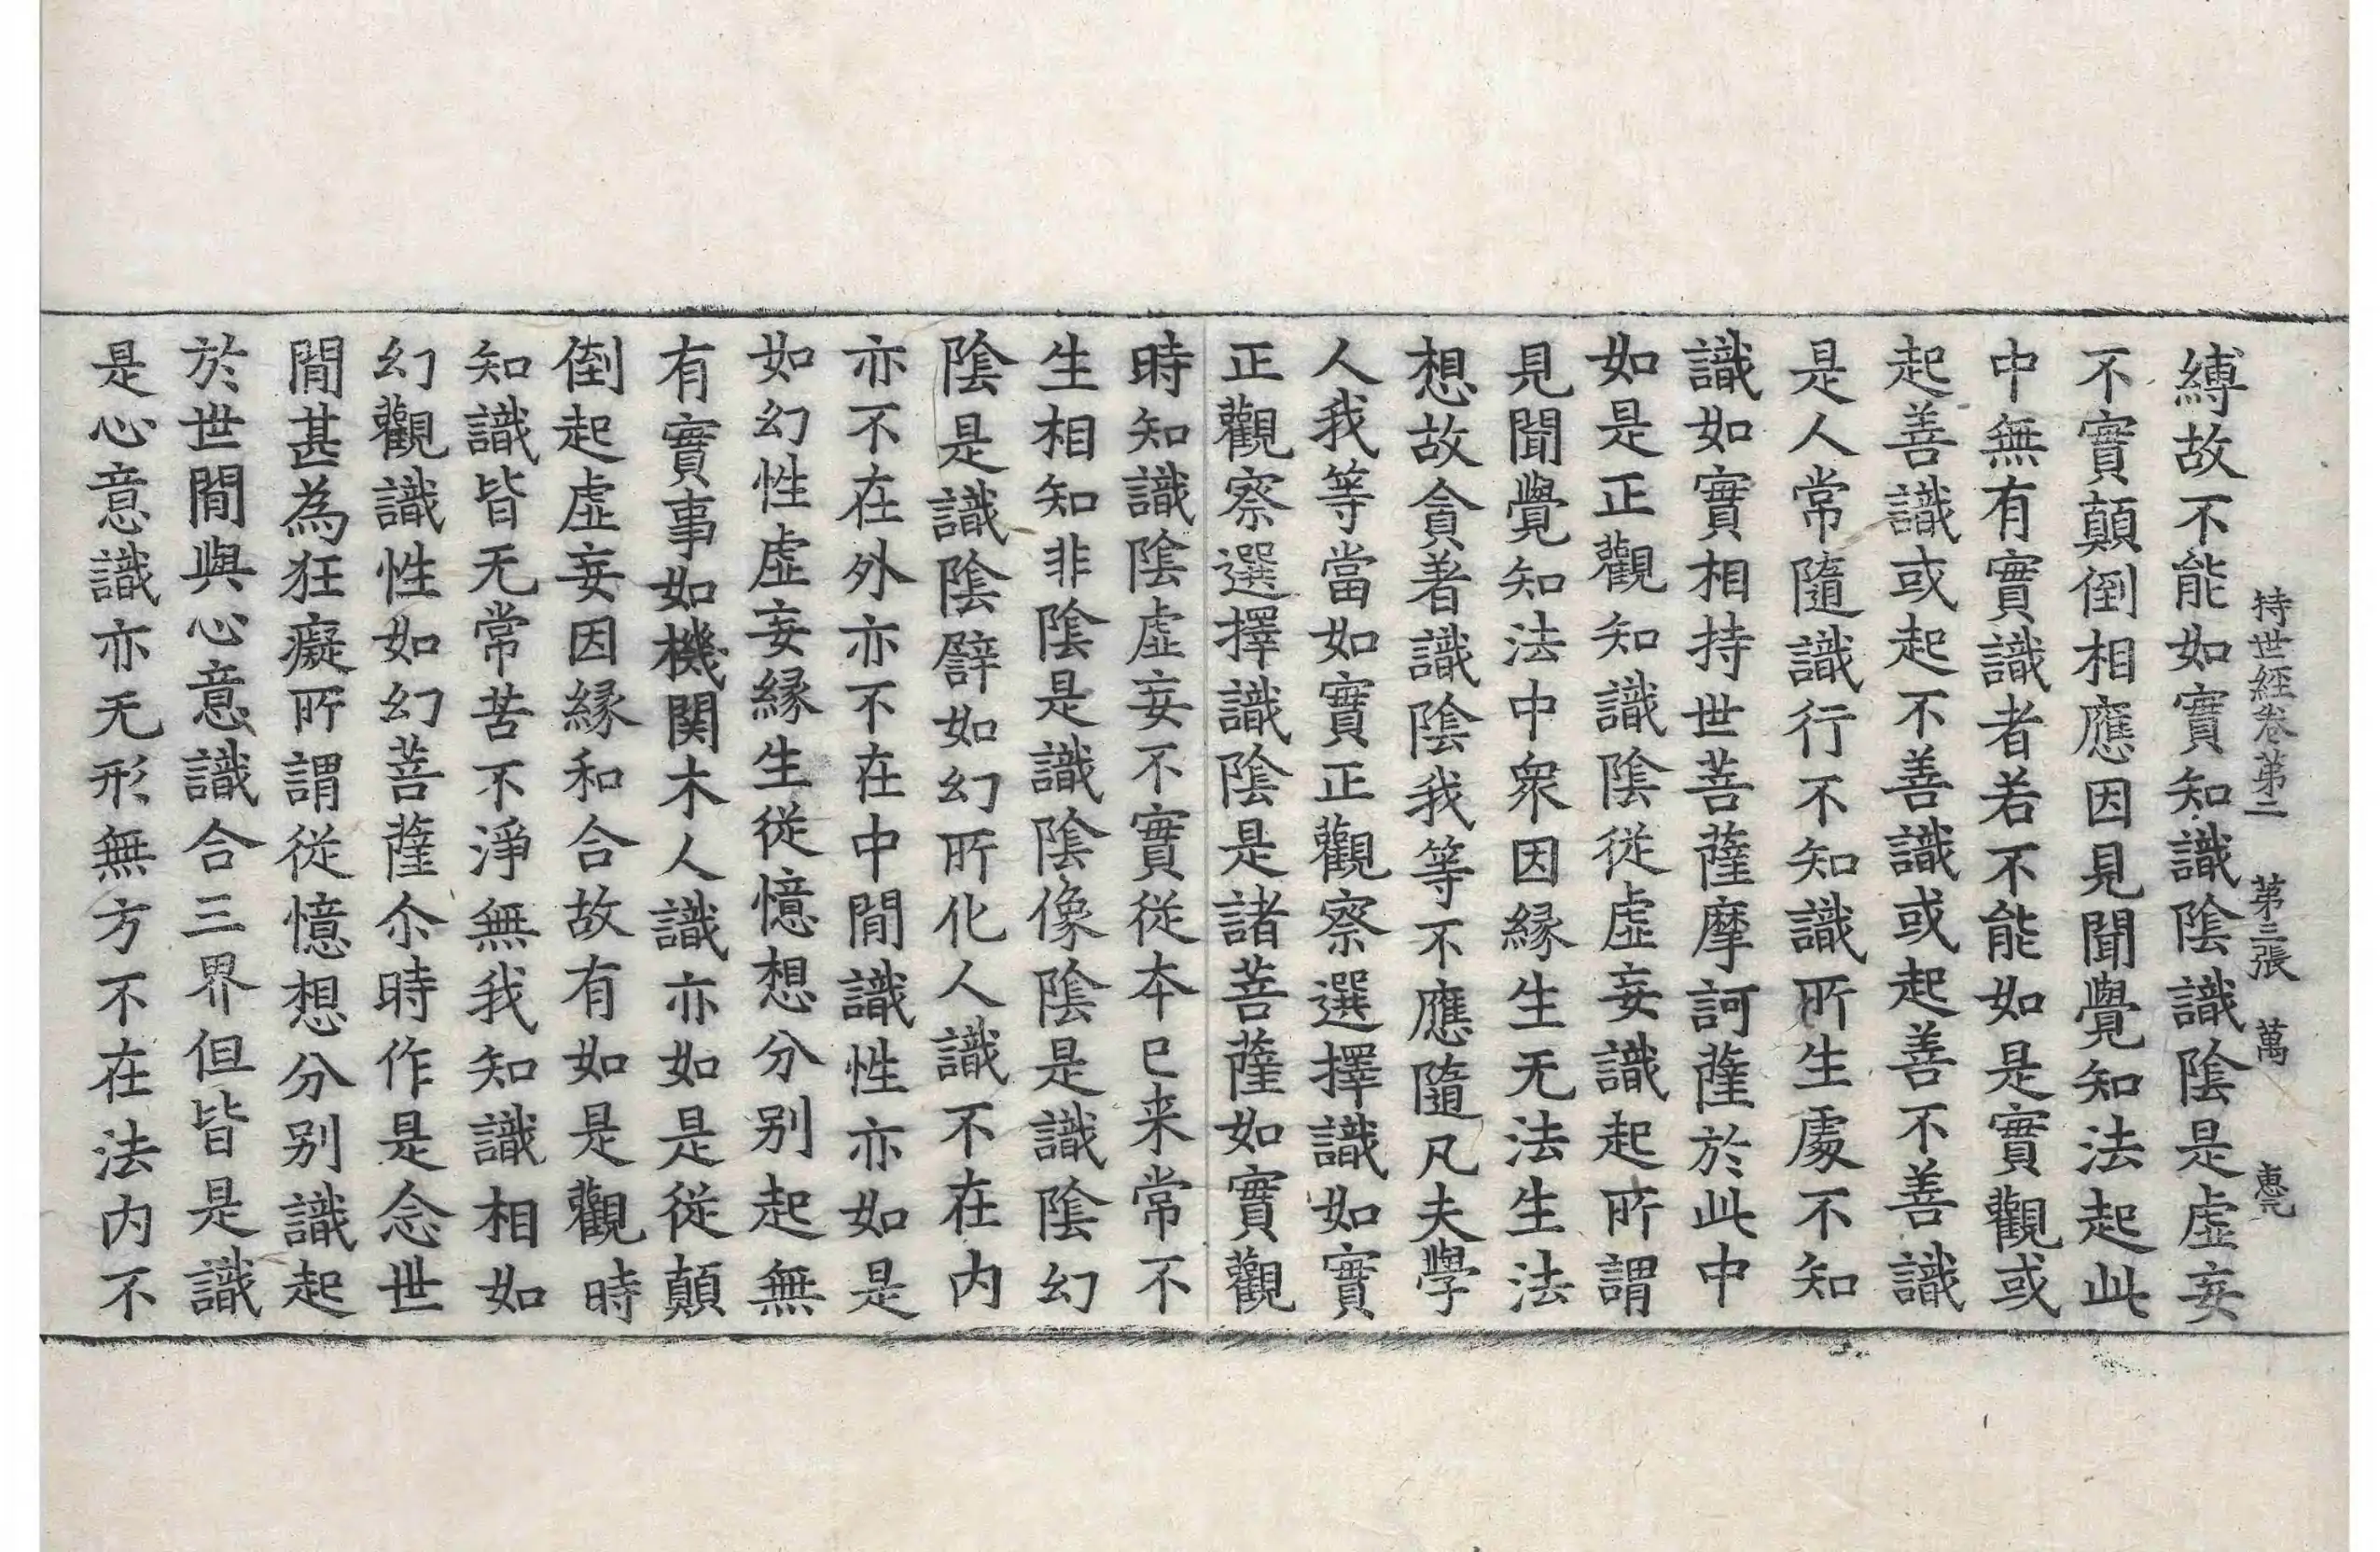 持世經卷第二 第三張 萬 惠元
縛故不能如實知識陰識陰是虛妄
不實顛倒相應因見聞覺知法起此
中無有實識者若不能如是實觀或
起善識或起不善識或起善不善識
是人常隨識行不知識所生處不知
識如實相持世菩薩摩訶薩於此中
如是正觀知識陰從虛妄識起所謂
見聞覺知法中衆因緣生无法生法
想故貪著識陰我等不應隨凡夫學
人我等當如實正觀察選擇識如實
正觀察選擇識陰是諸菩薩如實觀
時知識陰虛妄不實從夲已来常不
生相知非陰是識陰像陰是識陰幻
陰是識陰辟如幻所化人識不在内
亦不在外亦不在中閒識性亦如是
如幻性虛妄緣生從憶想分别起無
有實事如機関木人識亦如是從顛
倒起虛妄因緣和合故有如是觀時
知識皆无常苦不淨無我知識相如
幻觀識性如幻菩薩尒時作是念世
閒甚為狂癡所謂從憶想分别識起
於世閒與心意識合三界但皆是識
是心意識亦无形無方不在法内不